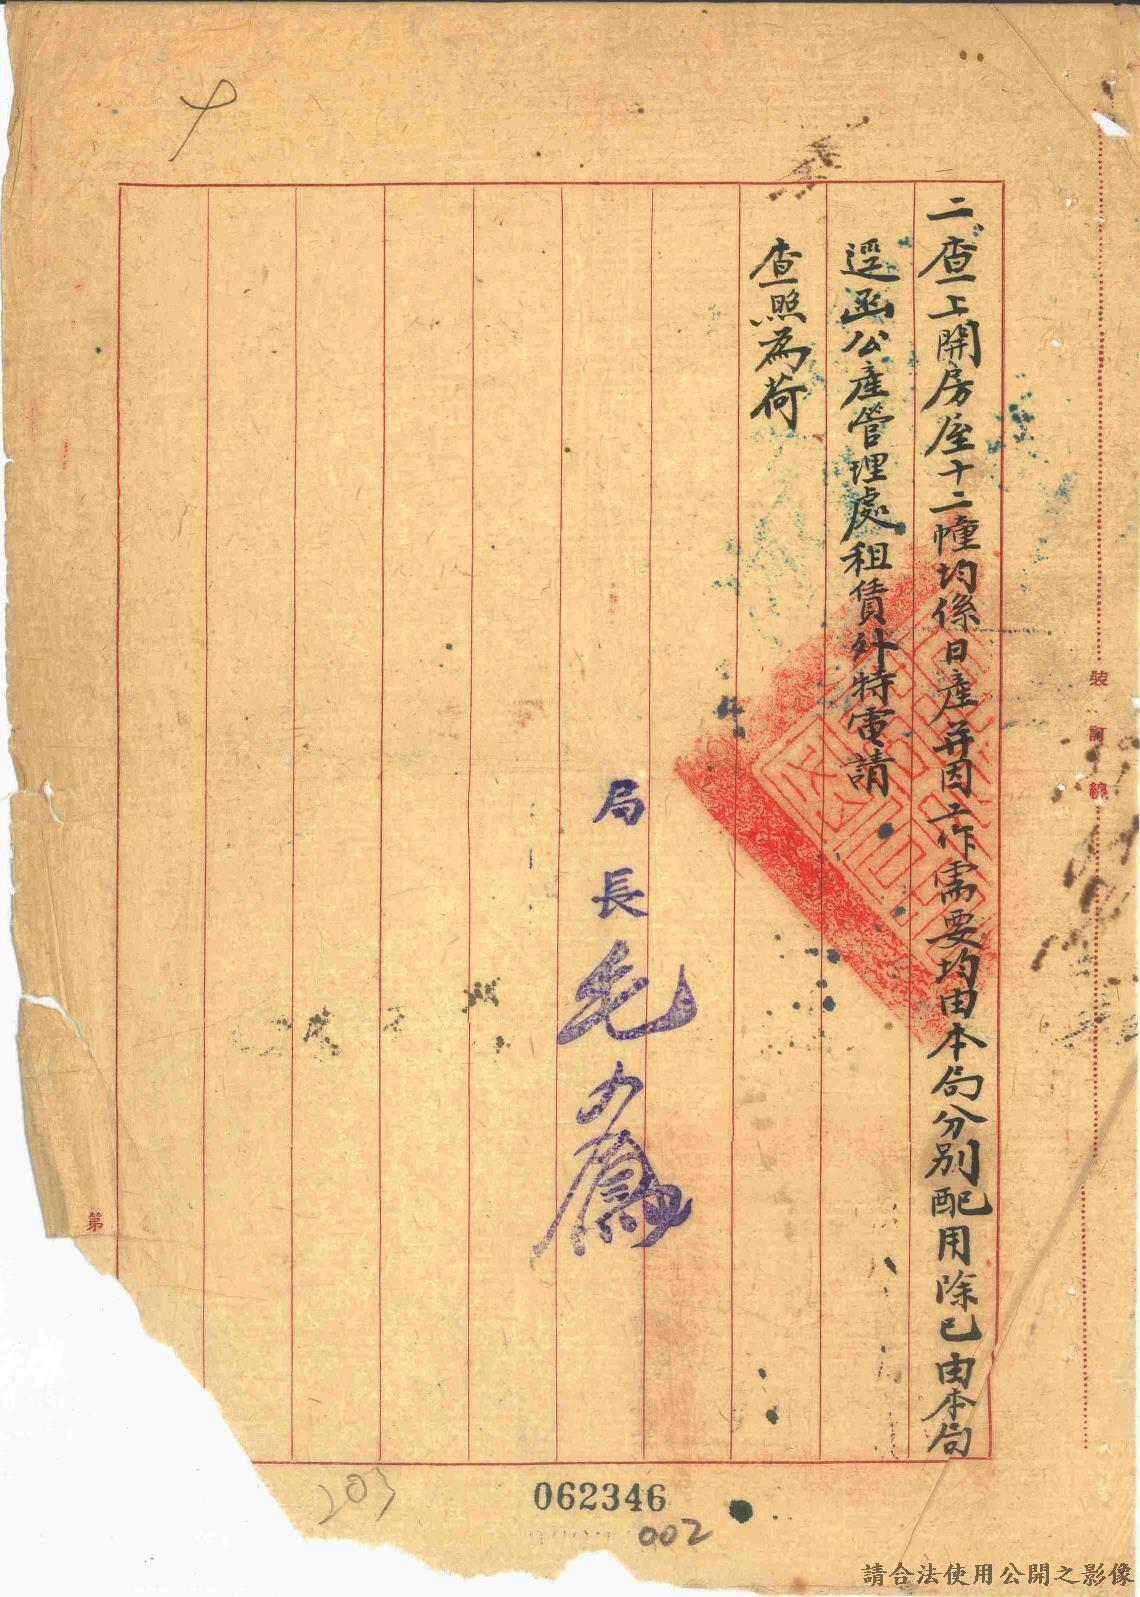 二、查上開房屋十二幢均係日產并因工作需要均由本局分別配用除已由本局
逕函公產管理處租賃外特電請
查照為荷
局長毛
裝訂線
第
203
062346
002
請合法使用公開之影像